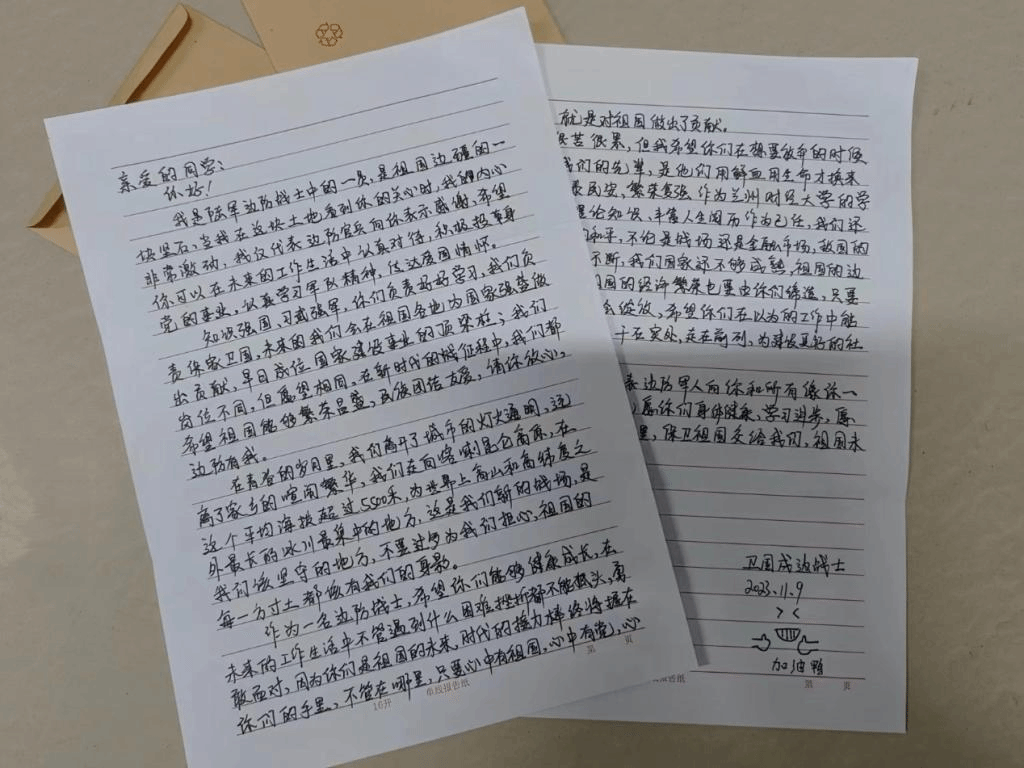 亲爱的同学：
你好！
我是陆军边防战士中的一员，是祖国边疆的一
块坚石，当我在这块土地看到你的关心时，我的内心
非常激动，我仅代表边防官兵向你表示感谢，希望
你可以在未来的工作生活中认真对待，积极投身
党的事业，认真学习军队精神，传达爱国情怀。
知识强国，习武强军，你们负责好好学习，我们负
责保家卫国，未来的我们会在祖国各地为国家强营做
出贡献，早日成位国家建设事业的顶梁柱；我们
岗位不同，但愿望相同，在新时代的新征程中，我们都
希望祖国能够繁荣昌盛，民族团结友爱，请你放心，
边防有我。
在青春的岁月里，我们离开了城市的灯火通明，远
离了家乡的喧闹繁华，我们在向喀喇昆仑高原，在
这个平均海拔超过5500米，为世界上高山和高纬度之
外最长的冰川最集中的地方，这是我们新的战场，是
我们该坚守的地方，不要过多为我们担心，祖国的
每一方寸土都做有我们的身影。
作为一名边防战士，希望你们能够健康成长，在
未来的工作生活中不管遇到什么困难挫折都不能低头，勇
敢面对，因为你们是祖国的未来，时代的接力棒终将握在
你们的手里，不管在哪里，只要心中有祖国，心中有党，心
16开 单线报告纸 第 页
就是对祖国做出了贡献。
很苦很累，但我希望你们在想要放弃的时候
我们的先辈，是他们用鲜血用生命才换来
泰民安，繁荣富强，作为兰州财经大学的学
理论知识，丰富人生阅历作为己任，我们还
和平，不怕是战场还是金融市场，敌国的
不断，我们国家还不够成熟，祖国的边
国的经济繁荣也要由你们缔造，只要
么绽放，希望你们在以为的工作中能
干在实处，走在前列，为建设美好的社
表边防军人向你和所有像你一
愿你们身体健康，学习进步，愿
里，保卫祖国交给我们，祖国未
卫国戍边战士
2023.11.9
加油鸭
报告纸 第 页